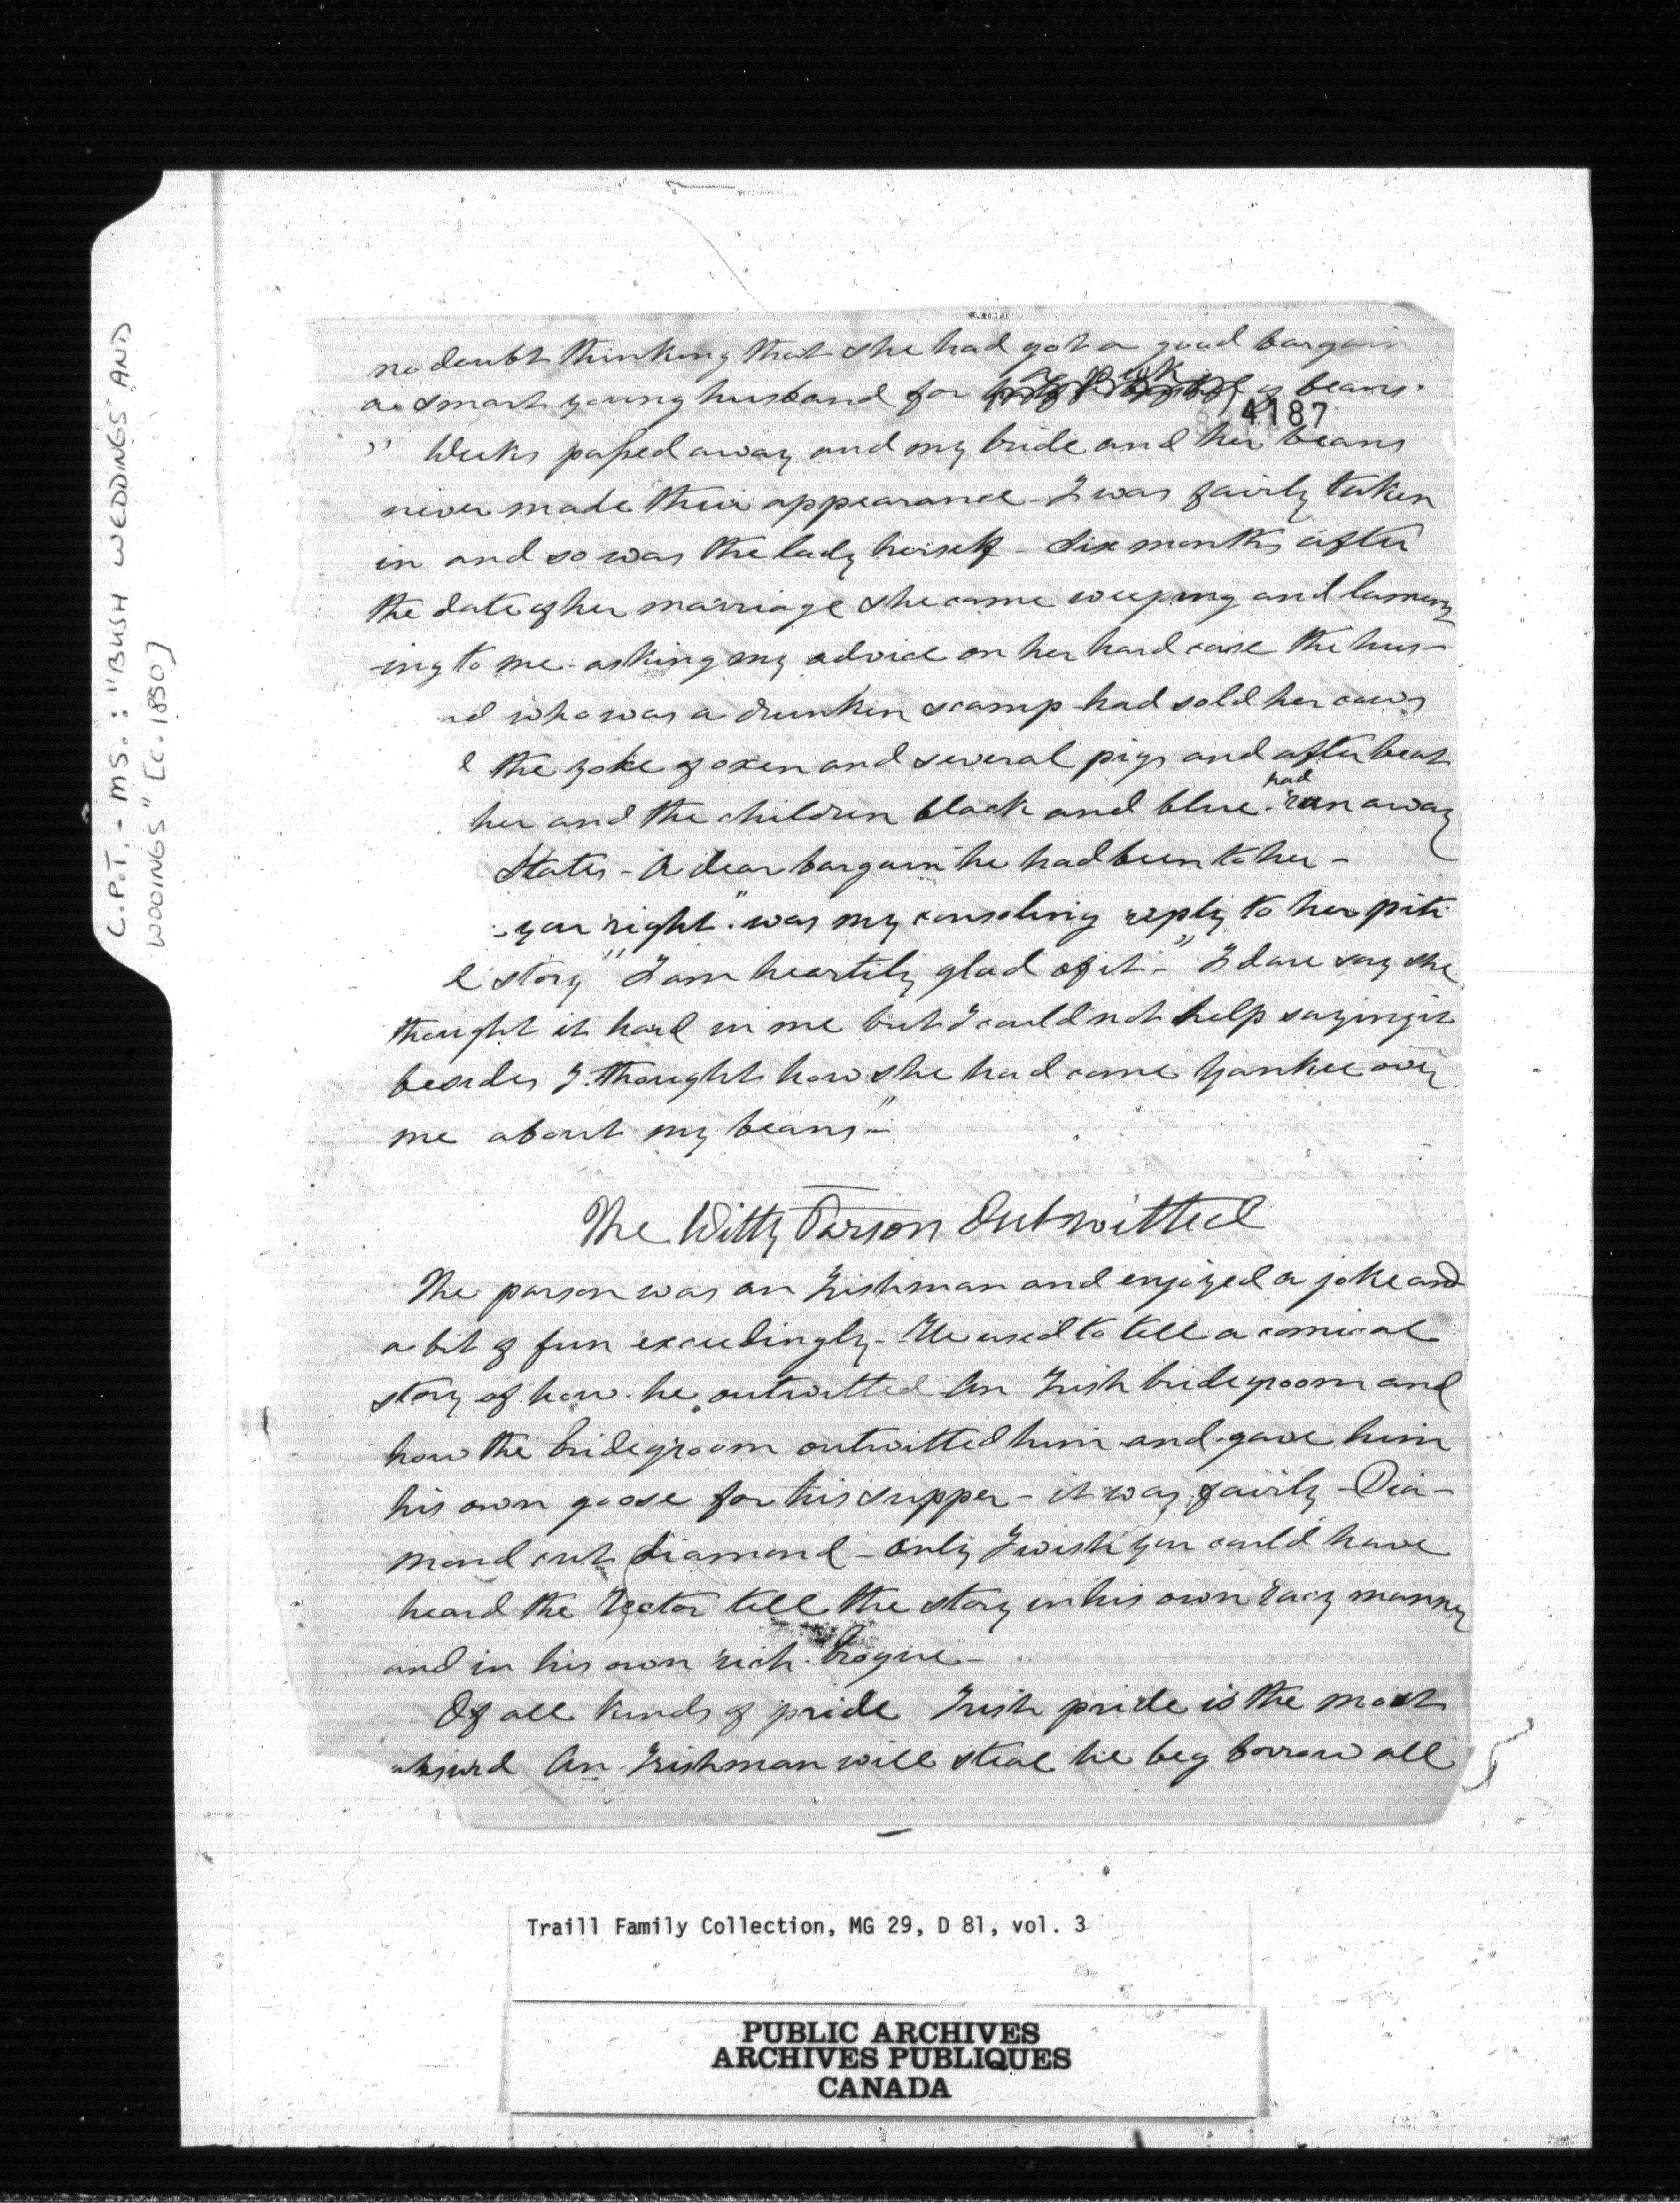 C.P.T. - MS.: "BUSH WEDDINGS AND
WOOINGS" [c. 1850]
no doubt thinking that she had got a good bargain
a smart young husband for a peck of beans.
4187
" Weeks passed away and my bride and her beans
never made their appearance - I was fairly taken
in and so was the lady herself - Six months after
the date of her marriage she came weeping and lament
-ing to me - asking my advice on her hard case the hus-
nd who was a drunken scamp had sold her cows
d the yoke of oxen and several pigs and after beat
her and the children black and blue. had ran away
States - A dear bargain he had been to her -
you right". was my consoling reply to her piti
l story "I am heartily glad of it -" I dare say she
thought it hard in me but I could not help saying it
besides I thought how she had come Yankee over
me about my beans -"
The Witty Parson Outwitted
The parson was an Irishman and enjoyed a joke and
a bit of fun exceedingly - He used to tell a comical
story of how he outwitted an Irish bridegroom and
how the bridegroom outwitted him and gave him
his own goose for his supper - it was fairly - Dia-
mond cut diamond - Only I wish you could have
heard the Rector tell the story in his own racy manner
and in his own rich brogue -
Of all kinds of pride Irish pride is the most
absurd An Irishman will steal lie beg borrow all
Traill Family Collection, MG 29, D 81, vol. 3
PUBLIC ARCHIVES
ARCHIVES PUBLIQUES
CANADA